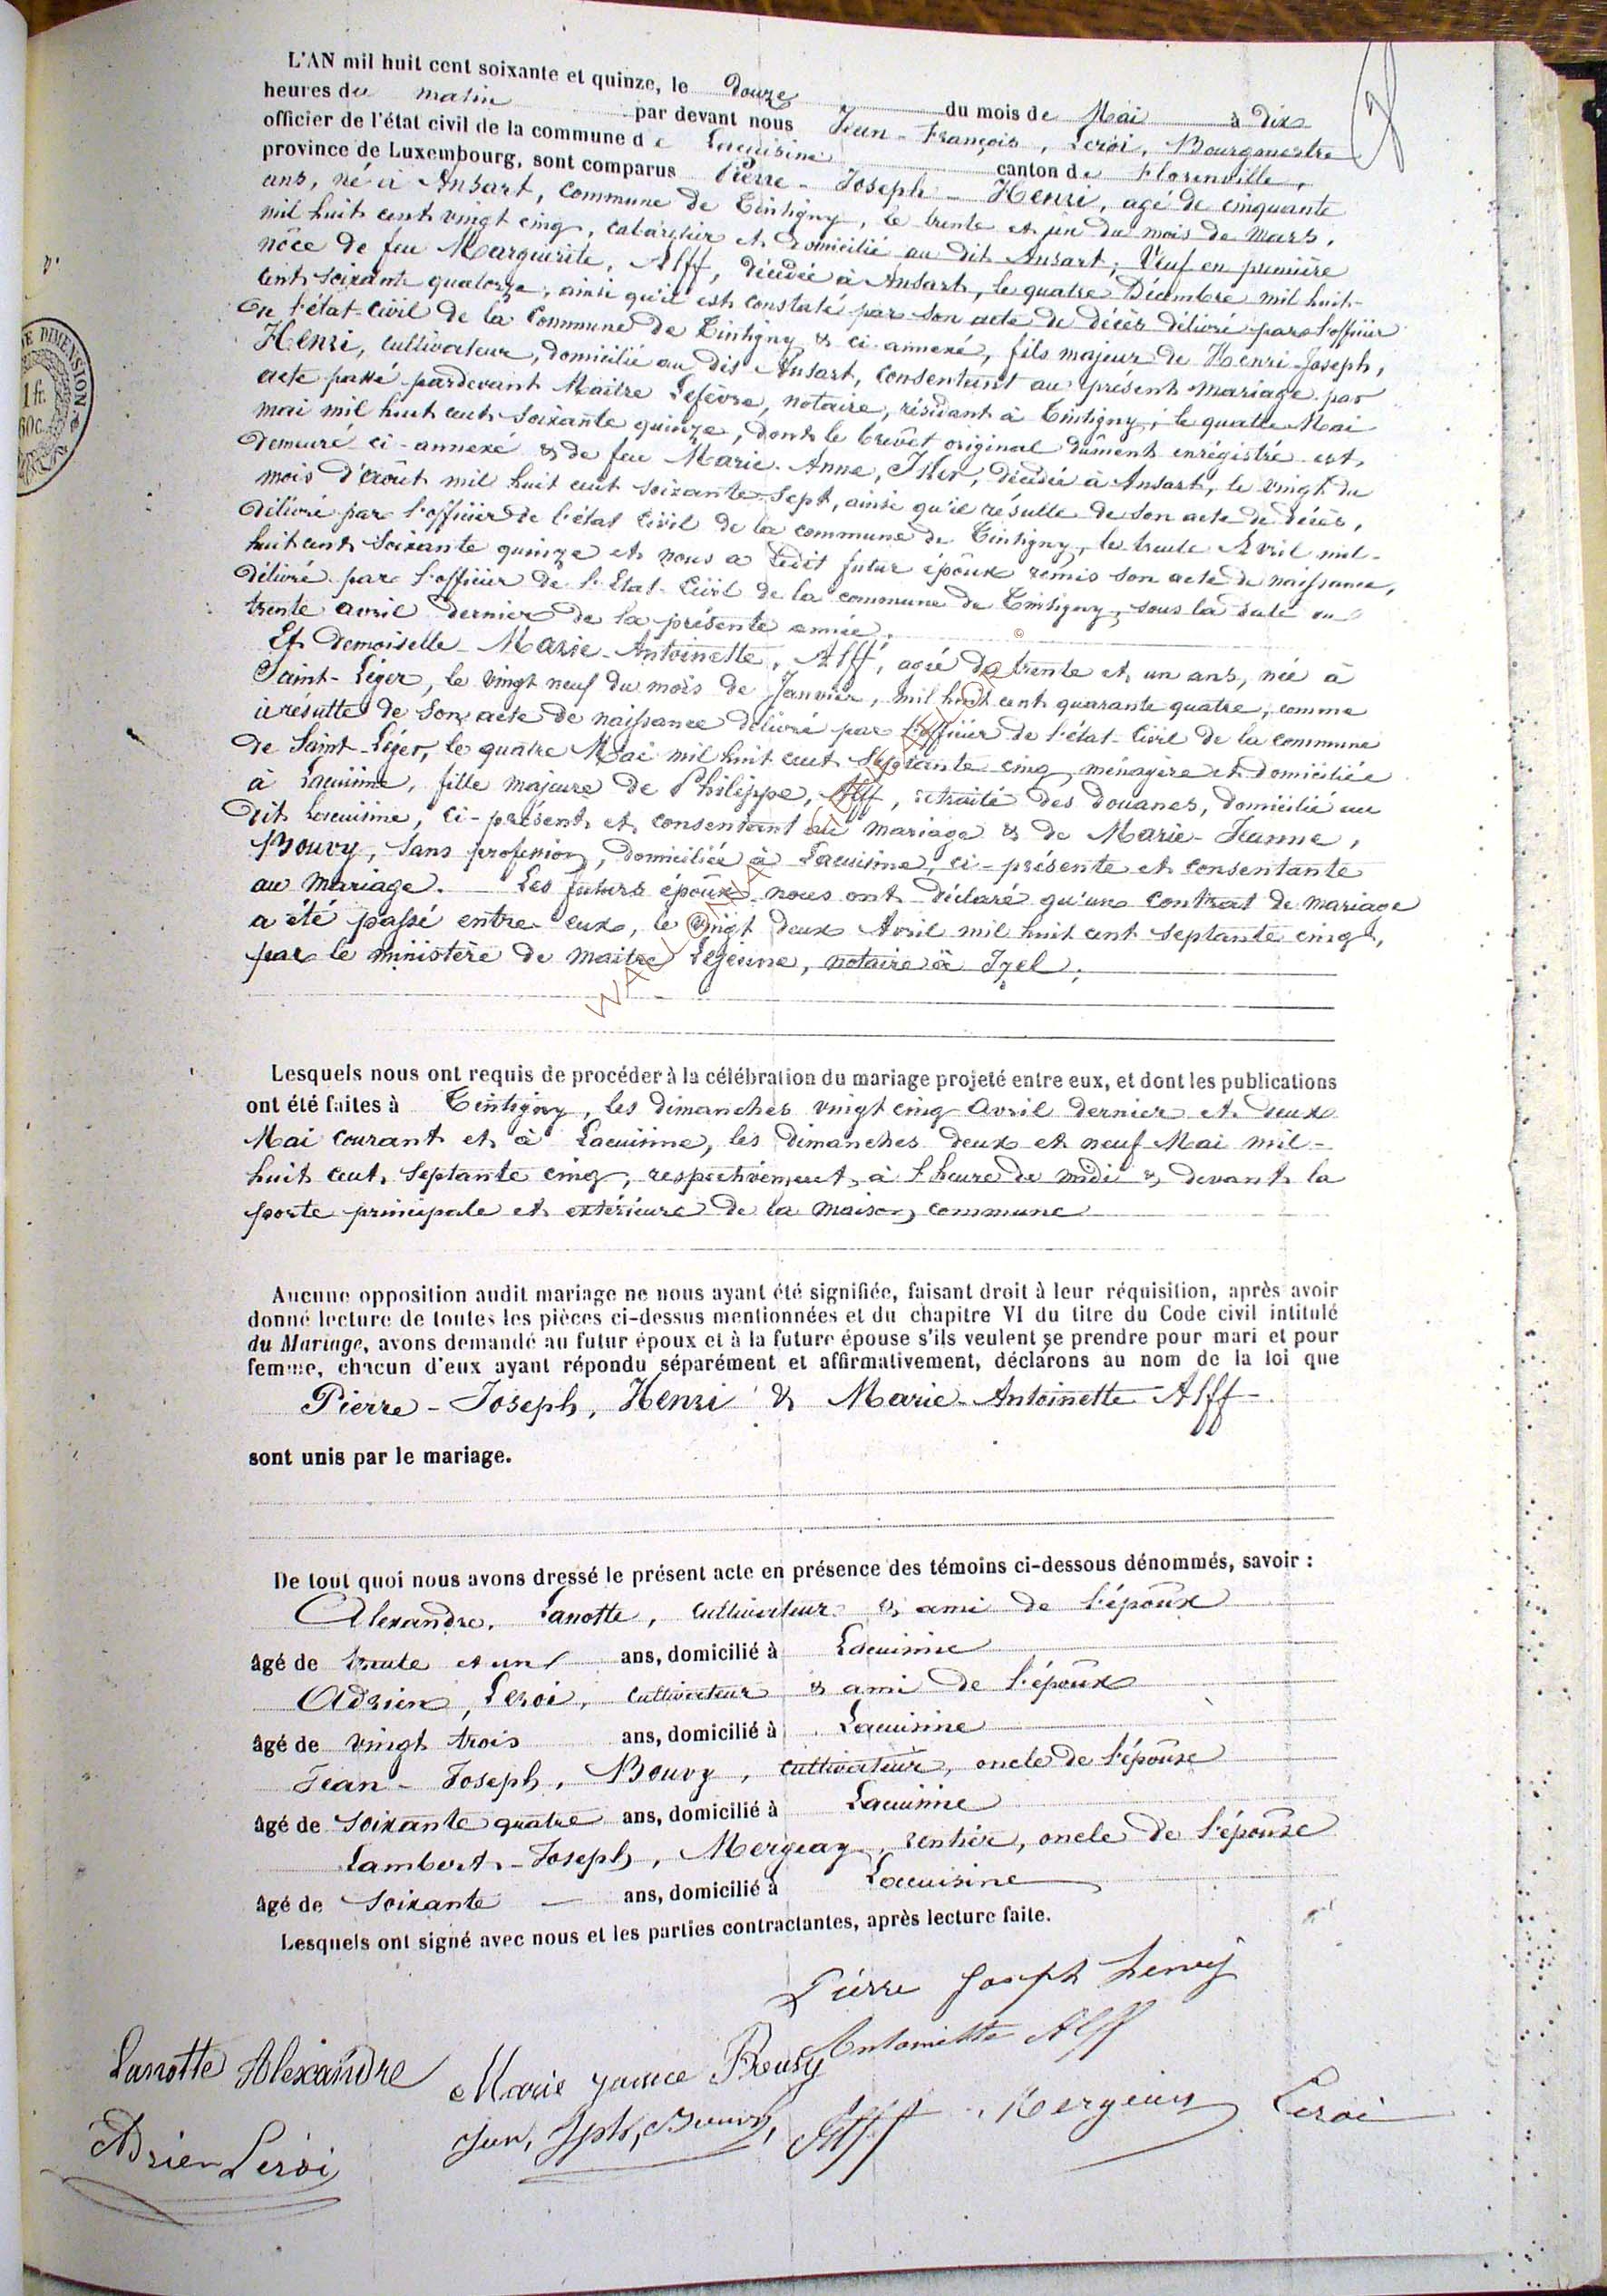 L'AN mil huit cent soixante et quinze, le douze du mois de Mai à dix
heures du matin par devant nous Jean-François, Leroi, Bourgmestre
officier de l'état civil de la commune de Lacuisine canton de Florenville,
province de Luxembourg, sont comparus Pierre-Joseph-Henri, agé de cinquante
ans, né à Ansart, commune de Tintigny, le trente et un du mois de mars,
mil huit cent vingt cinq, cabaretier et domicilié au dit Ansart, Veuf en première
nôce de feu Marguerite, Alff, décédée à Ansart, le quatre Décembre mil huit-
cent soixante quatorze, ainsi qu'il est constaté par son acte de décès délivré par l'officier
de l'état-civil de la Commune de Tintigny & ci-annexé, fils majeur de Henri-Joseph,
Henri, cultivateur, domicilié au dit Ansart, consentant au présent mariage par
acte passé pardevant Maitre Lefèvre, notaire, résidant à Tintigny, le quatre Mai
mai mil huit cent soixante quinze, dont le brevêt original dûment enrégistré est,
demeuré ci-annexé & de feu Marie-Anne, décédée à Ansart, le vingt du
mois d'Août mil huit cent soixante-sept, ainsi qu'il résulte de son acte de décès,
délivré par l'officier de l'état civil de la commune de Tintigny, le trente Avril mil-
huit cent soixante quinze et nous a ledit futur époux remis son acte de naissance,
délivré par l'officier de l'Etat-Civil de la commune de Tintigny, sous la date du
trente avril dernier de la présente année.
Et demoiselle Marie-Antoinette, Alff, agée de trente et un ans, née à
Saint-Léger, le vingt neuf du mois de Janvier, mil huit cent quarante quatre, comme
il résulte de son acte de naissance délivré par l'officier de l'état-civil de la commune
de Saint-Léger, le quatre Mai mil huit cent septante cinq, ménagère et domiciliée
à Lacuisine, fille majeure de Philippe, Alff, retraité des douanes, domicilié au
dit Lacuisine, ci-présent et consentant au mariage & de Marie-Jeanne,
Bouvy, sans profession, domiciliée à Lacuisine, ci-présente et consentante
au mariage. Les futurs époux nous ont déclaré qu'un contrat de mariage
a été passé entre eux, le vingt deux Avril mil huit cent septante cinq,
par le ministère de maitre Lejeune, notaire à Izel.
Lesquels nous ont requis de procéder à la célébration du mariage projeté entre eux, et dont les publications
ont été faites à Tintigny, les dimanches vingt cinq Avril dernier et deux
Mai courant et à Lacuisine, les dimanches deux et neuf Mai mil-
huit cent septante cinq, respectivement à l'heure de midi & devant la
porte principale et extérieure de la maison commune
Aucune opposition audit mariage ne nous ayant été signifiée, faisant droit à leur réquisition, après avoir
donné lecture de toutes les pièces ci-dessus mentionnées et du chapitre VI du titre du Code civil intitulé
du Mariage, avons demandé au futur époux et à la future épouse s'ils veulent se prendre pour mari et pour
femme, chacun d'eux ayant répondu séparément et affirmativement, déclarons au nom de la loi que
Pierre-Joseph, Henri & Marie-Antoinette Alff
sont unis par le mariage.
De tout quoi nous avons dressé le présent acte en présence des témoins ci-dessous dénommés, savoir :
Alexandre, Lanotte, cultivateur & ami de l'époux
âgé de trente et un ans, domicilié à Lacuisine
Adrien, Leroi, cultivateur & ami de l'époux
âgé de vingt trois ans, domicilié à Lacuisine
Jean-Joseph, Bouvy, cultivateur, oncle de l'épouse
âgé de soixante quatre ans, domicilié à Lacuisine
Lambert-Joseph, Mergeay, rentier, oncle de l'épouse
âgé de soixante ans, domicilié à Lacuisine
Lesquels ont signé avec nous et les parties contractantes, après lecture faite.
Pierre Joseph henry
Antoinette Alff
Lanotte Alexandre Marie Jeanne Bouvy
Jean, Jph, Bouvy, Alff Mergeay Leroi
Adrien Leroi
DE DIMENSION
1 fr.
60c.